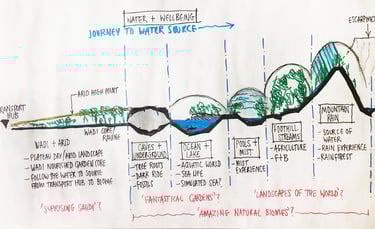 WATER + WELLBEING
JOURNEY TO WATER SOURCE
ESCARPMENT
ARID HIGH POINT
TRANSPORT
HUB
WADI CORE
WADI + ARID
- PLATEAU DRY/ARID LANDSCAPE
- WADI NOURISHED GARDEN CORE
- FOLLOW THE WATER TO SOURCE
FROM TRANSPORT HUB TO BIOME
CAVES +
UNDERGROUND
- TREE ROOTS
- DARK RIDE
- FOSSILS
OCEAN +
LAKE
- AQUATIC WORLD
- SEA LIFE
- SIMULATED SEA?
POOLS +
MIST
- MIST
EXPERIENCE
FOOTHILL
STREAMS
- AGRICULTURE
- F+B
MOUNTAIN
RAIN
- SOURCE OF
WATER
- RAIN EXPERIENCE
- RAINFOREST
'SURPRISING SAUDI'?
'FANTASTICAL GARDENS'?
'LANDSCAPES OF THE WORLD'?
'AMAZING NATURAL BIOMES'?